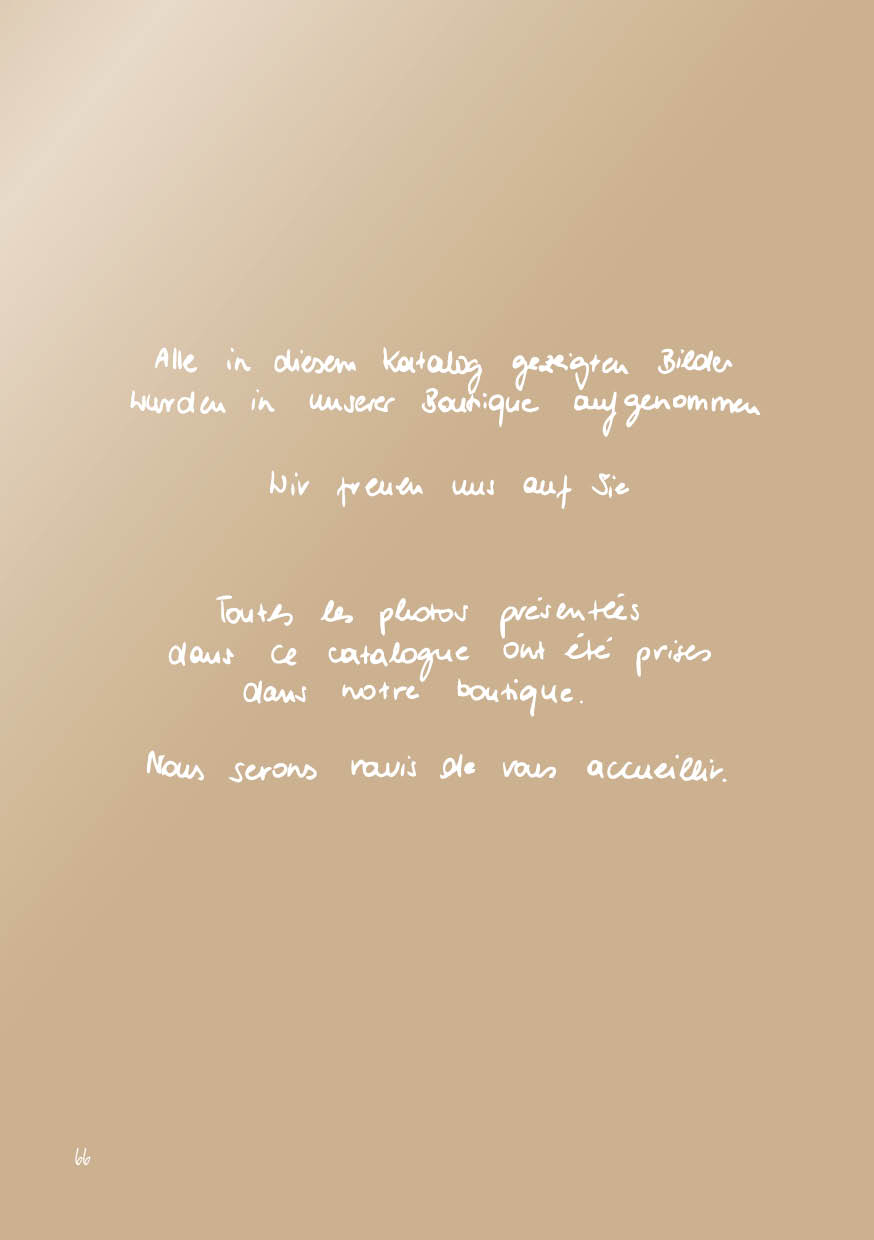 Alle in diesem Katalog gezeigten Bilder
wurden in unserer Boutique aufgenommen
Wir freuen uns auf Sie
Toutes les photos présentées
dans ce catalogue ont été prises
dans notre boutique.
Nous serons ravis de vous accueillir.
66